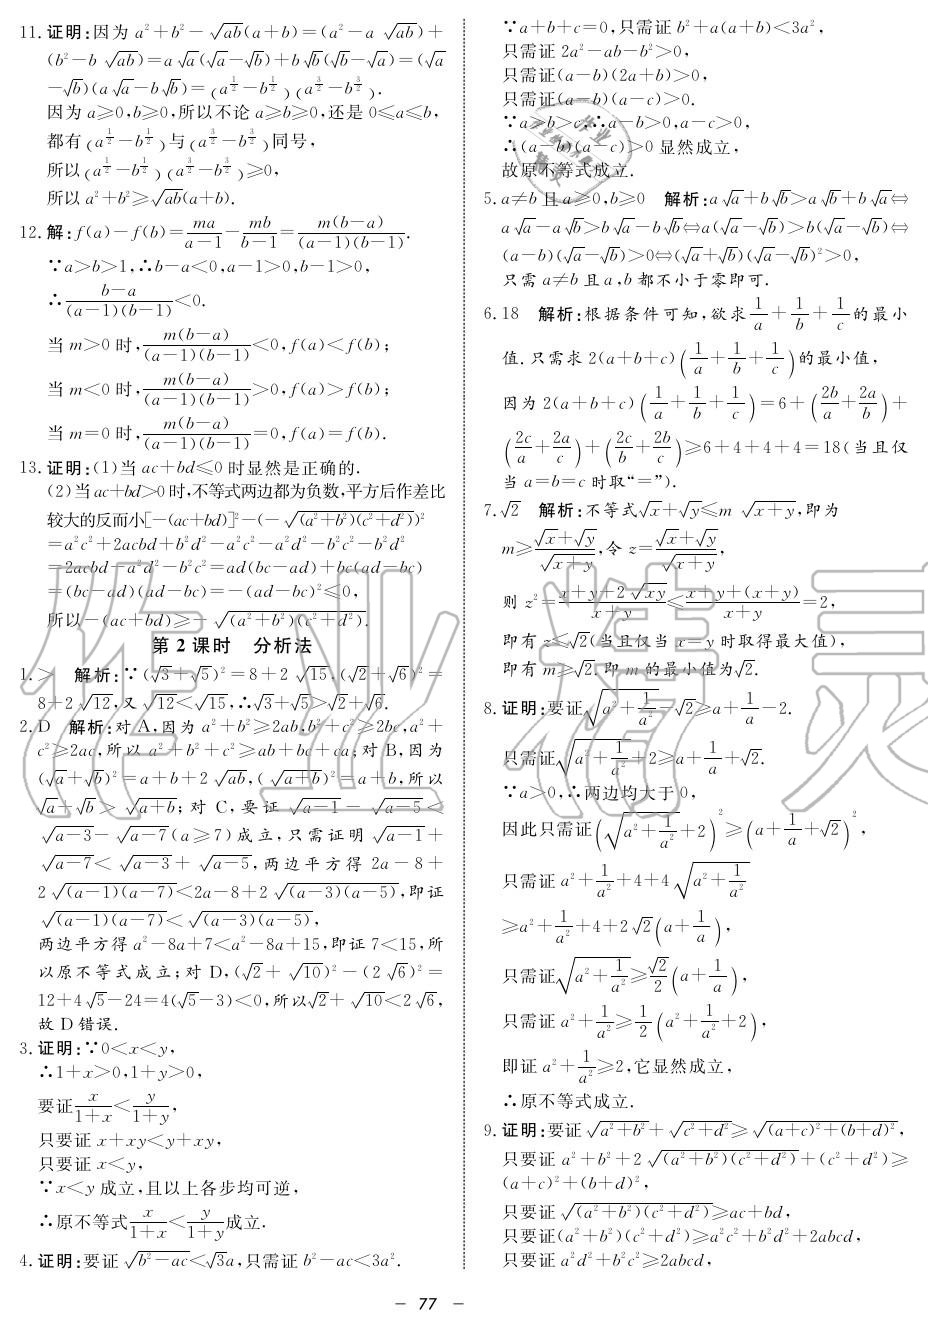 11. 证明:因为 a²+b²-√ab(a+b)=(a²-a √ab)+
(b²-b √ab)=a√a(√a-√b)+b√b(√b-√a)=(√a
-√b)(a√a-b√b)=(a^{1/2}-b^{1/2})(a^{3/2}-b^{3/2}).
因为 a≥0,b≥0,所以不论 a≥b≥0,还是 0≤a≤b,
都有(a^{1/2}-b^{1/2})与(a^{3/2}-b^{3/2})同号,
所以(a^{1/2}-b^{1/2})(a^{3/2}-b^{3/2})≥0,
所以 a²+b²≥√ab(a+b).
12. 解:f(a)-f(b)=ma/(a-1)-mb/(b-1)=m(b-a)/((a-1)(b-1)).
∵a>b>1,∴b-a<0,a-1>0,b-1>0,
∴(b-a)/((a-1)(b-1))<0.
当 m>0 时,m(b-a)/((a-1)(b-1))<0,f(a)<f(b);
当 m<0 时,m(b-a)/((a-1)(b-1))>0,f(a)>f(b);
当 m=0 时,m(b-a)/((a-1)(b-1))=0,f(a)=f(b).
13. 证明:(1)当 ac+bd≤0 时显然是正确的.
(2)当 ac+bd>0 时,不等式两边都为负数,平方后作差比
较大的反而小[-(ac+bd)]²-(-√((a²+b²)(c²+d²)))²
=a²c²+2acbd+b²d²-a²c²-a²d²-b²c²-b²d²
=2acbd-a²d²-b²c²=ad(bc-ad)+bc(ad-bc)
=(bc-ad)(ad-bc)=-(ad-bc)²≤0,
所以-(ac+bd)≥-√((a²+b²)(c²+d²)).
第 2 课时 分析法
1. > 解析:∵(√3+√5)²=8+2√15,(√2+√6)²=
8+2√12,又√12<√15,∴√3+√5>√2+√6.
2. D 解析:对 A,因为 a²+b²≥2ab,b²+c²≥2bc,a²+
c²≥2ac,所以 a²+b²+c²≥ab+bc+ca;对 B,因为
(√a+√b)²=a+b+2√ab,(√(a+b))²=a+b,所以
√a+√b>√(a+b);对 C,要证√(a-1)-√(a-5)<
√(a-3)-√(a-7)(a≥7)成立,只需证明√(a-1)+
√(a-7)<√(a-3)+√(a-5),两边平方得 2a-8+
2√((a-1)(a-7))<2a-8+2√((a-3)(a-5)),即证
√((a-1)(a-7))<√((a-3)(a-5)),
两边平方得 a²-8a+7<a²-8a+15,即证 7<15,所
以原不等式成立;对 D,(√2+√10)²-(2√6)²=
12+4√5-24=4(√5-3)<0,所以√2+√10<2√6,
故 D 错误.
3. 证明:∵0<x<y,
∴1+x>0,1+y>0,
要证x/(1+x)<y/(1+y),
只要证 x+xy<y+xy,
只要证 x<y,
∵x<y 成立,且以上各步均可逆,
∴原不等式x/(1+x)<y/(1+y)成立.
4. 证明:要证√(b²-ac)<√3a,只需证 b²-ac<3a².
∵a+b+c=0,只需证 b²+a(a+b)<3a²,
只需证 2a²-ab-b²>0,
只需证(a-b)(2a+b)>0,
只需证(a-b)(a-c)>0.
∵a>b>c,∴a-b>0,a-c>0,
∴(a-b)(a-c)>0 显然成立,
故原不等式成立.
5. a≠b 且 a≥0,b≥0 解析:a√a+b√b>a√b+b√a⇔
a√a-a√b>b√a-b√b⇔a(√a-√b)>b(√a-√b)⇔
(a-b)(√a-√b)>0⇔(√a+√b)(√a-√b)²>0,
只需 a≠b 且 a,b 都不小于零即可.
6. 18 解析:根据条件可知,欲求1/a+1/b+1/c的最小
值.只需求 2(a+b+c)(1/a+1/b+1/c)的最小值,
因为 2(a+b+c)(1/a+1/b+1/c)=6+(2b/a+2a/b)+
(2c/a+2a/c)+(2c/b+2b/c)≥6+4+4+4=18(当且仅
当 a=b=c 时取“=”).
7. √2 解析:不等式√x+√y≤m √(x+y),即为
m≥(√x+√y)/√(x+y),令 z=(√x+√y)/√(x+y),
则 z²=(x+y+2√xy)/(x+y)≤(x+y+(x+y))/(x+y)=2,
即有 z≤√2(当且仅当 x=y 时取得最大值),
即有 m≥√2.即 m 的最小值为√2.
8. 证明:要证√(a²+1/a²)-√2≥a+1/a-2.
只需证√(a²+1/a²)+2≥a+1/a+√2.
∵a>0,∴两边均大于 0,
因此只需证(√(a²+1/a²)+2)²≥(a+1/a+√2)²,
只需证 a²+1/a²+4+4√(a²+1/a²)
≥a²+1/a²+4+2√2(a+1/a),
只需证√(a²+1/a²)≥√2/2(a+1/a),
只需证 a²+1/a²≥1/2(a²+1/a²+2),
即证 a²+1/a²≥2,它显然成立,
∴原不等式成立.
9. 证明:要证√(a²+b²)+√(c²+d²)≥√((a+c)²+(b+d)²),
只要证 a²+b²+2√((a²+b²)(c²+d²))+(c²+d²)≥
(a+c)²+(b+d)²,
只要证√((a²+b²)(c²+d²))≥ac+bd,
只要证(a²+b²)(c²+d²)≥a²c²+b²d²+2abcd,
只要证 a²d²+b²c²≥2abcd,
— 77 —
作业精灵